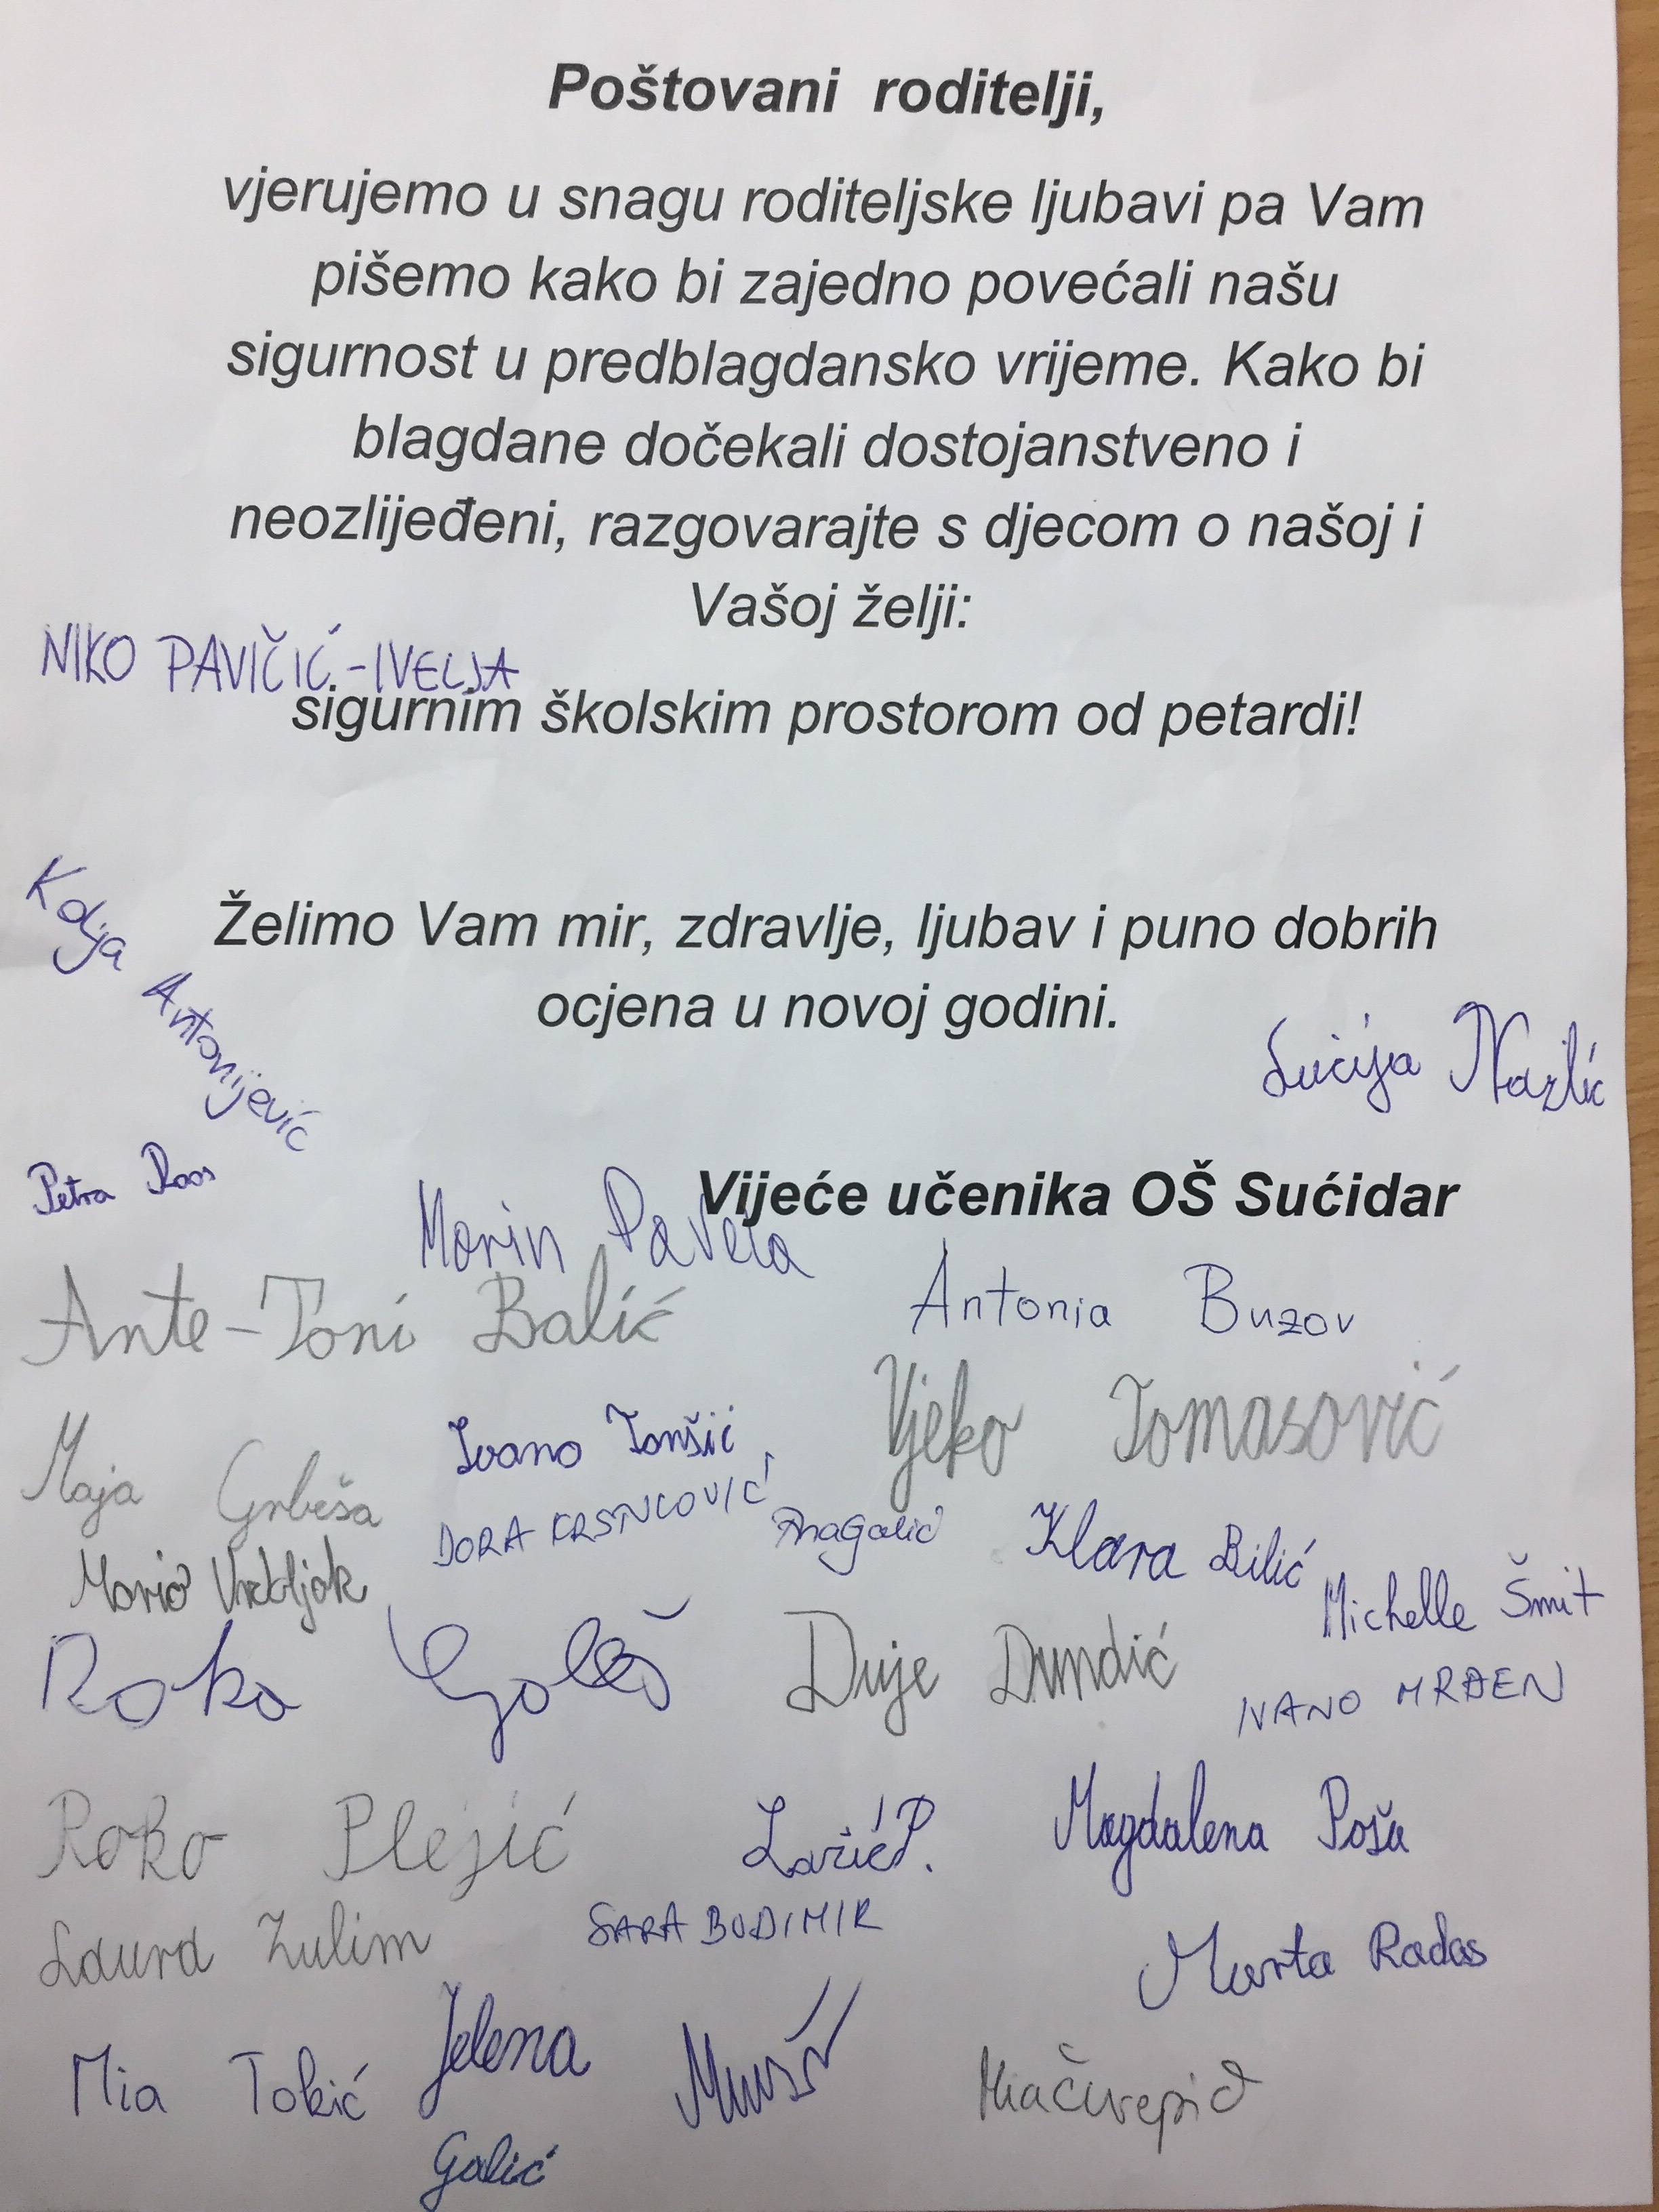 Poštovani roditelji,
vjerujemo u snagu roditeljske ljubavi pa Vam
pišemo kako bi zajedno povećali našu
sigurnost u predblagdansko vrijeme. Kako bi
blagdane dočekali dostojanstveno i
neozlijeđeni, razgovarajte s djecom o našoj i
Vašoj želji:
NIKO PAVIČIĆ-IVELJA
sigurnim školskim prostorom od petardi!
Kolja Antonijević
Želimo Vam mir, zdravlje, ljubav i puno dobrih
ocjena u novoj godini.
Lucija Nazlić
Petra Roos
Vijeće učenika OŠ Sućidar
Morin Pavela
Antonia Buzov
Ante-Toni Balić
Vjeko Tomasović
Ivano Tonšić
Maja Grbeša
DORA
Ana Galić
Klara Bilić
Michelle Šmit
Mario Vrkljak
Roko Goleš
Duje Dundić
IVANO MRĐEN
Roko Plejić
Lazić P.
Magdalena Poša
Laura Zulim
SARA BUDIMIR
Marta Radas
Mia Tokić
Jelena
Galić
Mia Čurepić